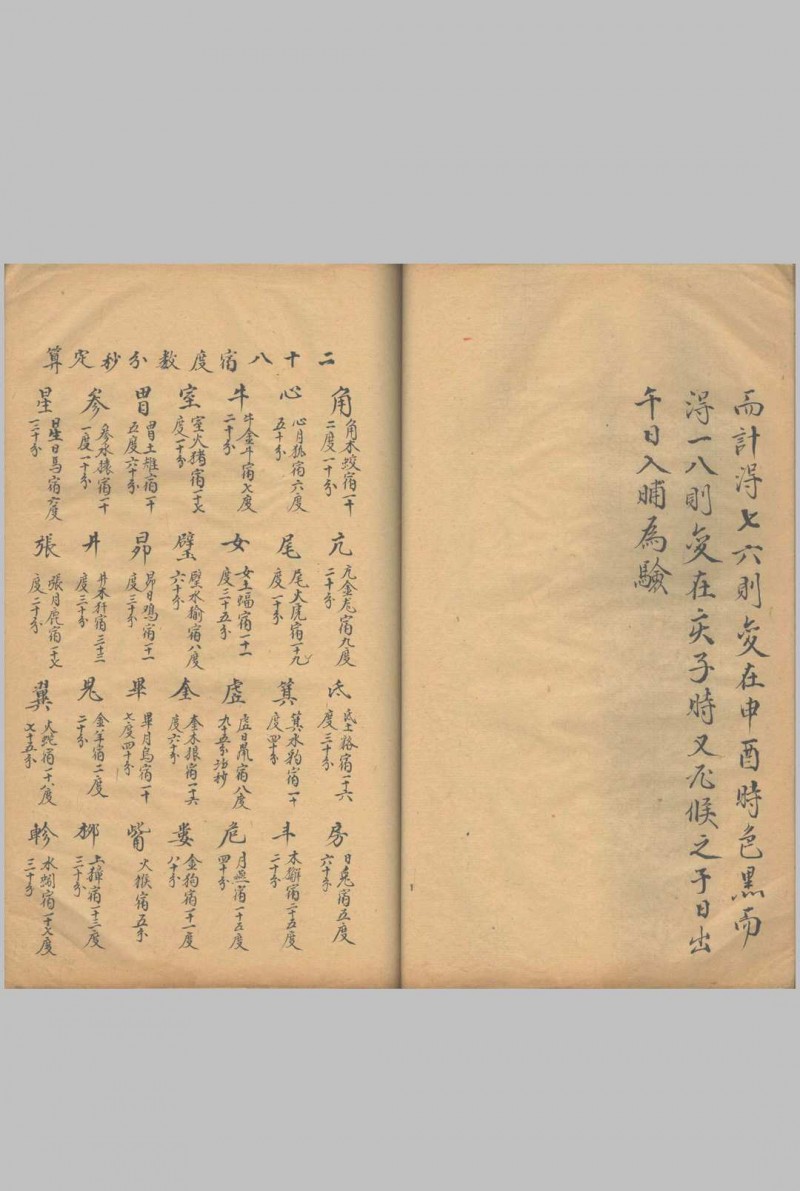 而計得七六則變在申酉時色黑而
得一八則變在亥子時又凡候之于日出
午日入晡為驗
二十八宿度数分秒定算
角 角木蛟宿一十二度一十分
亢 亢金龙宿九度二十分
氐 氐土狢宿一十六度三十分
房 日兔宿五度六十分
心 心月狐宿六度五十分
尾 尾火虎宿一十九度一十分
箕 箕水豹宿一十度四十分
斗 木獬宿二十五度二十分
牛 牛金牛宿七度二十分
女 女土蝠宿一十一度三十五分
虚 虚日鼠宿八度九十五分
危 月燕宿一十五度四十分
室 室火猪宿一十七度一十分
壁 壁水貐宿八度六十分
奎 奎木狼宿一十六度六十分
娄 金狗宿一十一度八十分
胃 胃土雉宿一十五度六十分
昴 昴日鸡宿一十一度三十分
畢 畢月烏宿一十七度四十分
觜 火猴宿五分
参 参水猿宿一十一度一十分
井 井木犴宿三十三度三十分
鬼 金羊宿二度二十分
柳 土獐宿一十三度三十分
星 星日馬宿六度三十分
張 張月鹿宿一十七度二十分
翼 火蛇宿一十八度七十五分
軫 水蚓宿一十七度三十分